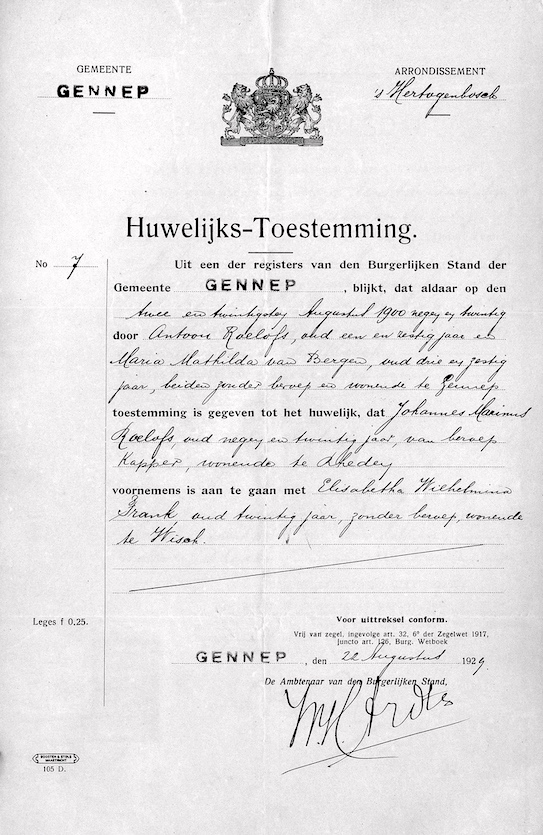 GEMEENTE
GENNEP
ARRONDISSEMENT
's Hertogenbosch
Huwelijks-Toestemming.
No 7
Uit een der registers van den Burgerlijken Stand der
Gemeente GENNEP, blijkt, dat aldaar op den
twee en twintigsten Augustus 1900 negen en twintig
door Antoon Roelofs, oud een en zestig jaar en
Maria Mathilda van Bergen, oud drie en zestig
jaar, beiden zonder beroep en wonende te Gennep
toestemming is gegeven tot het huwelijk, dat Johannes Marinus
Roelofs oud negen en twintig jaar, van beroep
Kapper, wonende te Rheden
voornemens is aan te gaan met Elisabetha Wilhelmina
Frank oud twintig jaar, zonder beroep, wonende
te Wisch.
Leges f 0,25.
Voor uittreksel conform.
Vrij van zegel, ingevolge art. 32, 6º der Zegelwet 1917,
juncto art. 126, Burg. Wetboek
GENNEP, den 22 Augustus 1929
De Ambtenaar van den Burgerlijken Stand,
105 D.